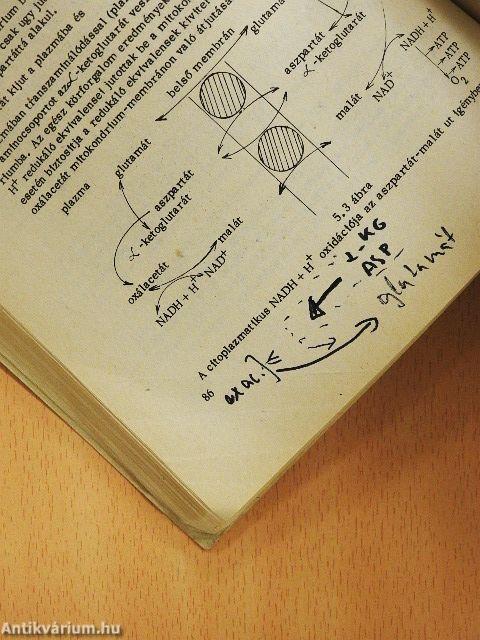 csak úgy ju
partáttá alakul.
át kijut a plazmába és
aminocsoportot az α-ketoglutarát vesz
riumba. Az egész körforgalom eredmények
H⁺ redukáló ekvivalensei jutottak be a mitokon
esetén biztosítja a redukáló ekvivalensek kivitel
oxálacetát mitokondrium-membránon való átjutása
plazma
belső membrán
glutamát
aszpartát
α-ketoglutarát
malát
NAD⁺
NADH + H⁺
ATP
ATP
ATP
O₂
glutamát
aszpartát
α-ketoglutarát
oxálacetát
malát
NADH + H⁺
NAD⁺
5.3 ábra
A citoplazmatikus NADH + H⁺ oxidációja az aszpartát-malát út igényben
86
α-KG
ASP
glutamát
oxac.
Antikvárium.hu